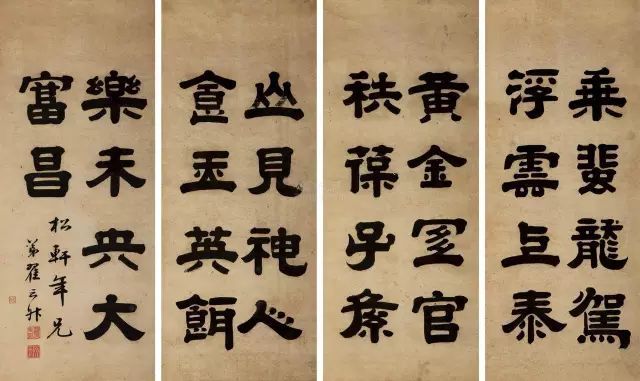 乘蜚龍駕
浮雲上泰
黃金宜官
秩葆子孫
山見神人
食玉英餌
樂未央大
富昌
松軒年兄
弟翟云升